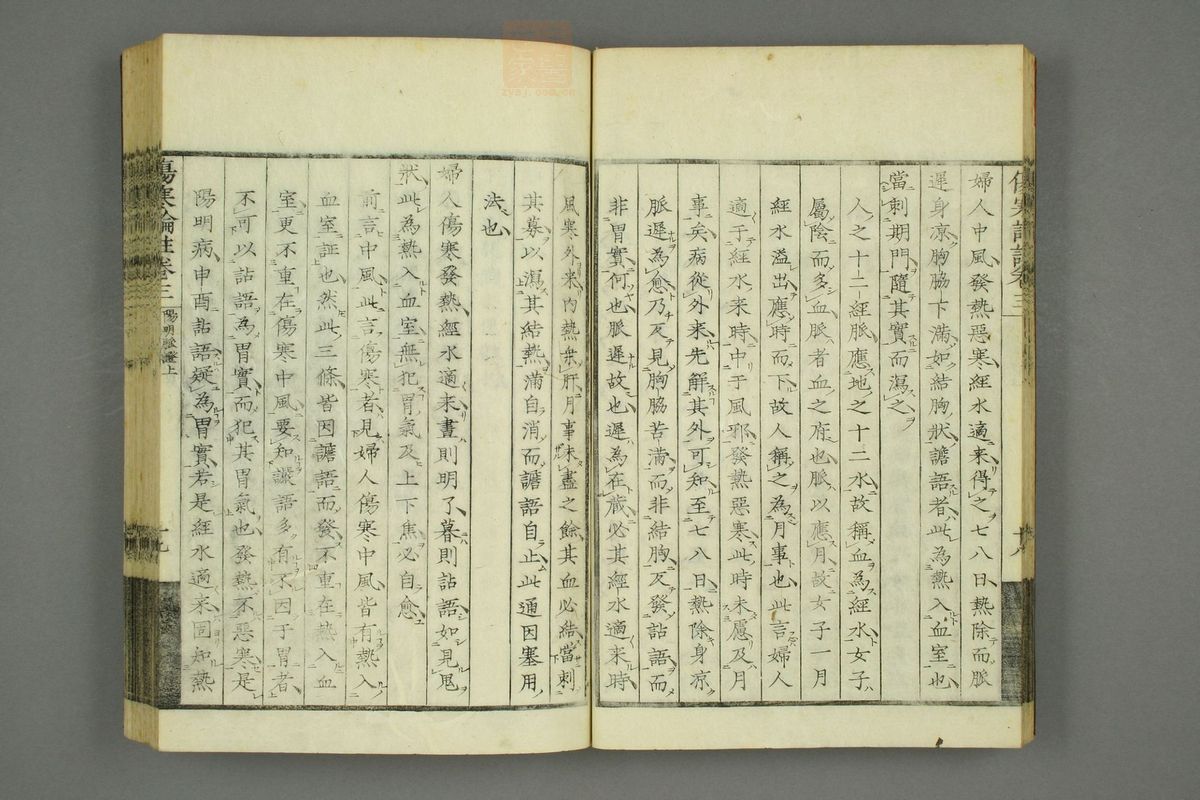 婦人中風發熱惡寒經水適來得之七八日熱除而脈
遲身凉胸脇下滿如結胸狀譫語者此為熱入血室也
當刺期門隨其實而瀉之
人之十二經脈應地之十二水故稱血為經水女子
屬陰而多血脈者血之府也脈以應月故女子一月
經水溢出應時而下故人稱之為月事也此言婦人
適于經水來時中于風邪發熱惡寒此時未慮及月
事矣病從外來先解其外可知至七八日熱除身凉
脈遲為愈乃反見胸脇苦滿而非結胸反發詀語而
非胃實何也脈遲故也遲為在藏必其經水適來時
風寒外來內熱乘肝月事未盡之餘其血必結當刺
其募以瀉其結熱滿自消而譫語自止此通因塞用
法也
婦人傷寒發熱經水適來晝則明了暮則詀語如見鬼
狀此為熱入血室無犯胃氣及上下焦必自愈
前言中風此言傷寒者見婦人傷寒中風皆有熱入
血室証也然此三條皆因譫語而發不重在熱入血
室更不重在傷寒中風要知譫語多有不因于胃者
不可以詀語為胃實而犯其胃氣也發熱不惡寒是
陽明病申酉詀語疑為胃實若是經水適來固知熱
傷寒論註卷三
陽明脈證上
十九